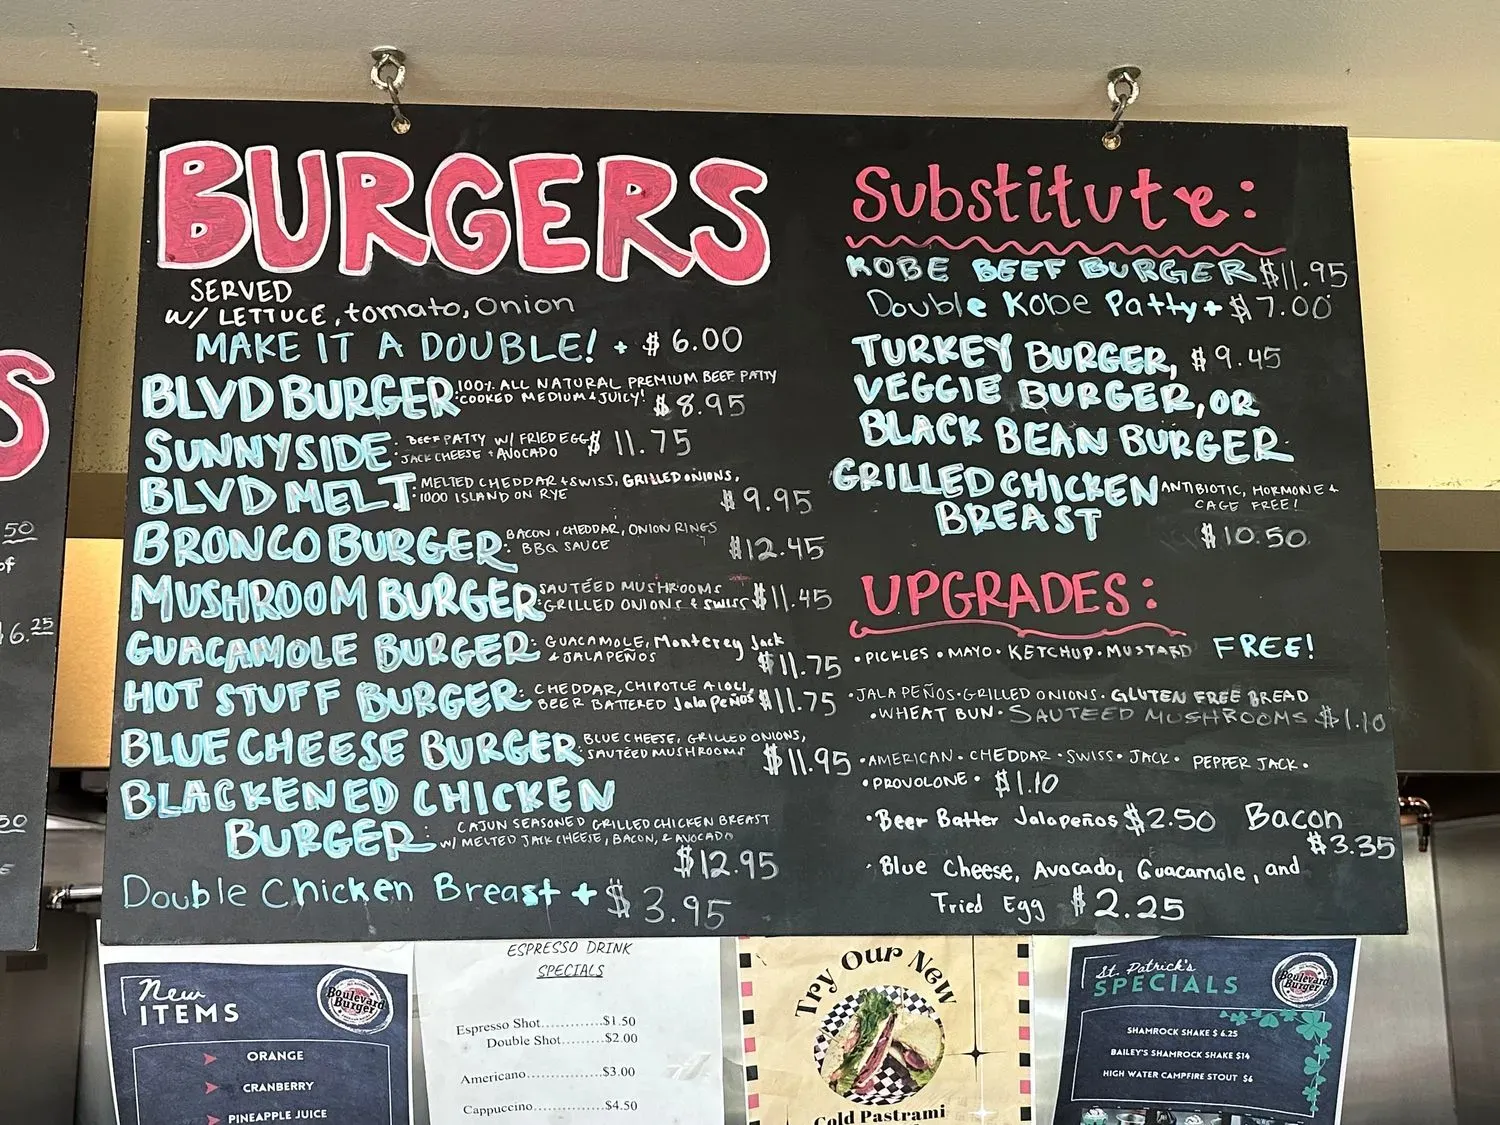 BURGERS
SERVED
W/ LETTUCE, tomato, Onion
MAKE IT A DOUBLE! + $6.00
BLVD BURGER: 100% ALL NATURAL PREMIUM BEEF PATTY
COOKED MEDIUM & JUICY! $8.95
SUNNYSIDE: BEEF PATTY W/ FRIED EGG $11.75
JACK CHEESE + AVOCADO
BLVD MELT: MELTED CHEDDAR + SWISS, GRILLED ONIONS,
1000 ISLAND ON RYE $9.95
BRONCO BURGER: BACON, CHEDDAR, ONION RINGS
BBQ SAUCE $12.45
MUSHROOM BURGER: SAUTÉED MUSHROOMS
GRILLED ONIONS & SWISS $11.45
GUACAMOLE BURGER: GUACAMOLE, Monterey Jack
& JALAPEÑOS $11.75
HOT STUFF BURGER: CHEDDAR, CHIPOTLE AIOLI,
BEER BATTERED Jalapeños $11.75
BLUE CHEESE BURGER: BLUE CHEESE, GRILLED ONIONS,
SAUTÉED MUSHROOMS $11.95
BLACKENED CHICKEN
BURGER: CAJUN SEASONED GRILLED CHICKEN BREAST
W/ MELTED JACK CHEESE, BACON, & AVOCADO
$12.95
Double Chicken Breast + $3.95
Substitute:
KOBE BEEF BURGER $11.95
Double Kobe Patty + $7.00
TURKEY BURGER, $9.45
VEGGIE BURGER, OR
BLACK BEAN BURGER
GRILLED CHICKEN ANTIBIOTIC, HORMONE +
BREAST CAGE FREE!
$10.50
UPGRADES:
• PICKLES • MAYO • KETCHUP • MUSTARD FREE!
• JALAPEÑOS • GRILLED ONIONS • GLUTEN FREE BREAD
• WHEAT BUN • SAUTEED MUSHROOMS $1.10
• AMERICAN • CHEDDAR • SWISS • JACK • PEPPER JACK •
• PROVOLONE • $1.10
• Beer Batter Jalapeños $2.50 Bacon
$3.35
• Blue Cheese, Avocado, Guacamole, and
Fried Egg $2.25
S
50
of
$16.25
50
E
New
ITEMS
Boulevard
Burger
ORANGE
CRANBERRY
PINEAPPLE JUICE
ESPRESSO DRINK
SPECIALS
Espresso Shot............$1.50
Double Shot.........$2.00
Americano...............$3.00
Cappuccino.............$4.50
Try Our New
Cold Pastrami
St. Patrick's
SPECIALS
Boulevard
Burger
SHAMROCK SHAKE $ 6.25
BAILEY'S SHAMROCK SHAKE $14
HIGH WATER CAMPFIRE STOUT $6